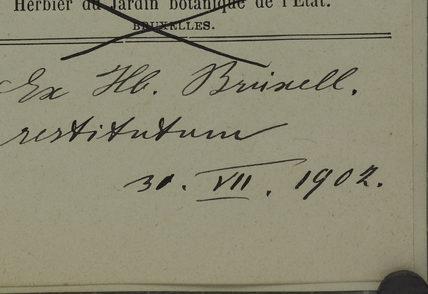 Herbier du Jardin botanique de l'État.
BRUXELLES.
Ex Hb. Bruxell.
restitutum
31. VII. 1902.